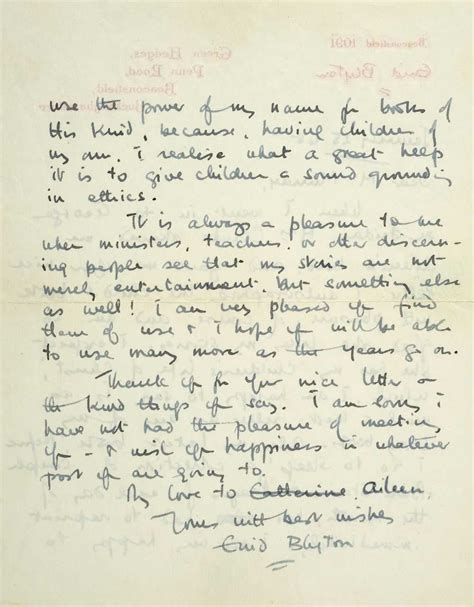 Beaconsfield 1091
Green Hedges,
Penn Road,
Beaconsfield,
Enid Blyton
use the power of my name for books of
this kind, because, having children of
my own, I realise what a great help
it is to give children a sound grounding
in ethics.
It is always a pleasure to me
when ministers, teachers, or other discern-
ing people see that my stories are not
merely entertainment, but something else
as well! I am very pleased you find
them of use & I hope you will be able
to use many more as the years go on.
Thank you for your nice letter &
the kind things you say. I am sorry I
have not had the pleasure of meeting
you - & wish you happiness in whatever
post you are going to.
My love to Catherine Aileen.
Yours with best wishes
Enid Blyton